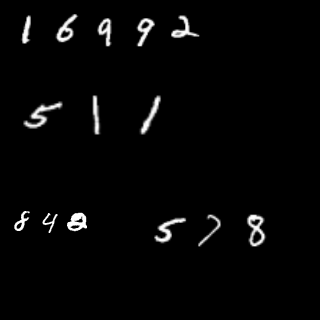 16992
511
842 578